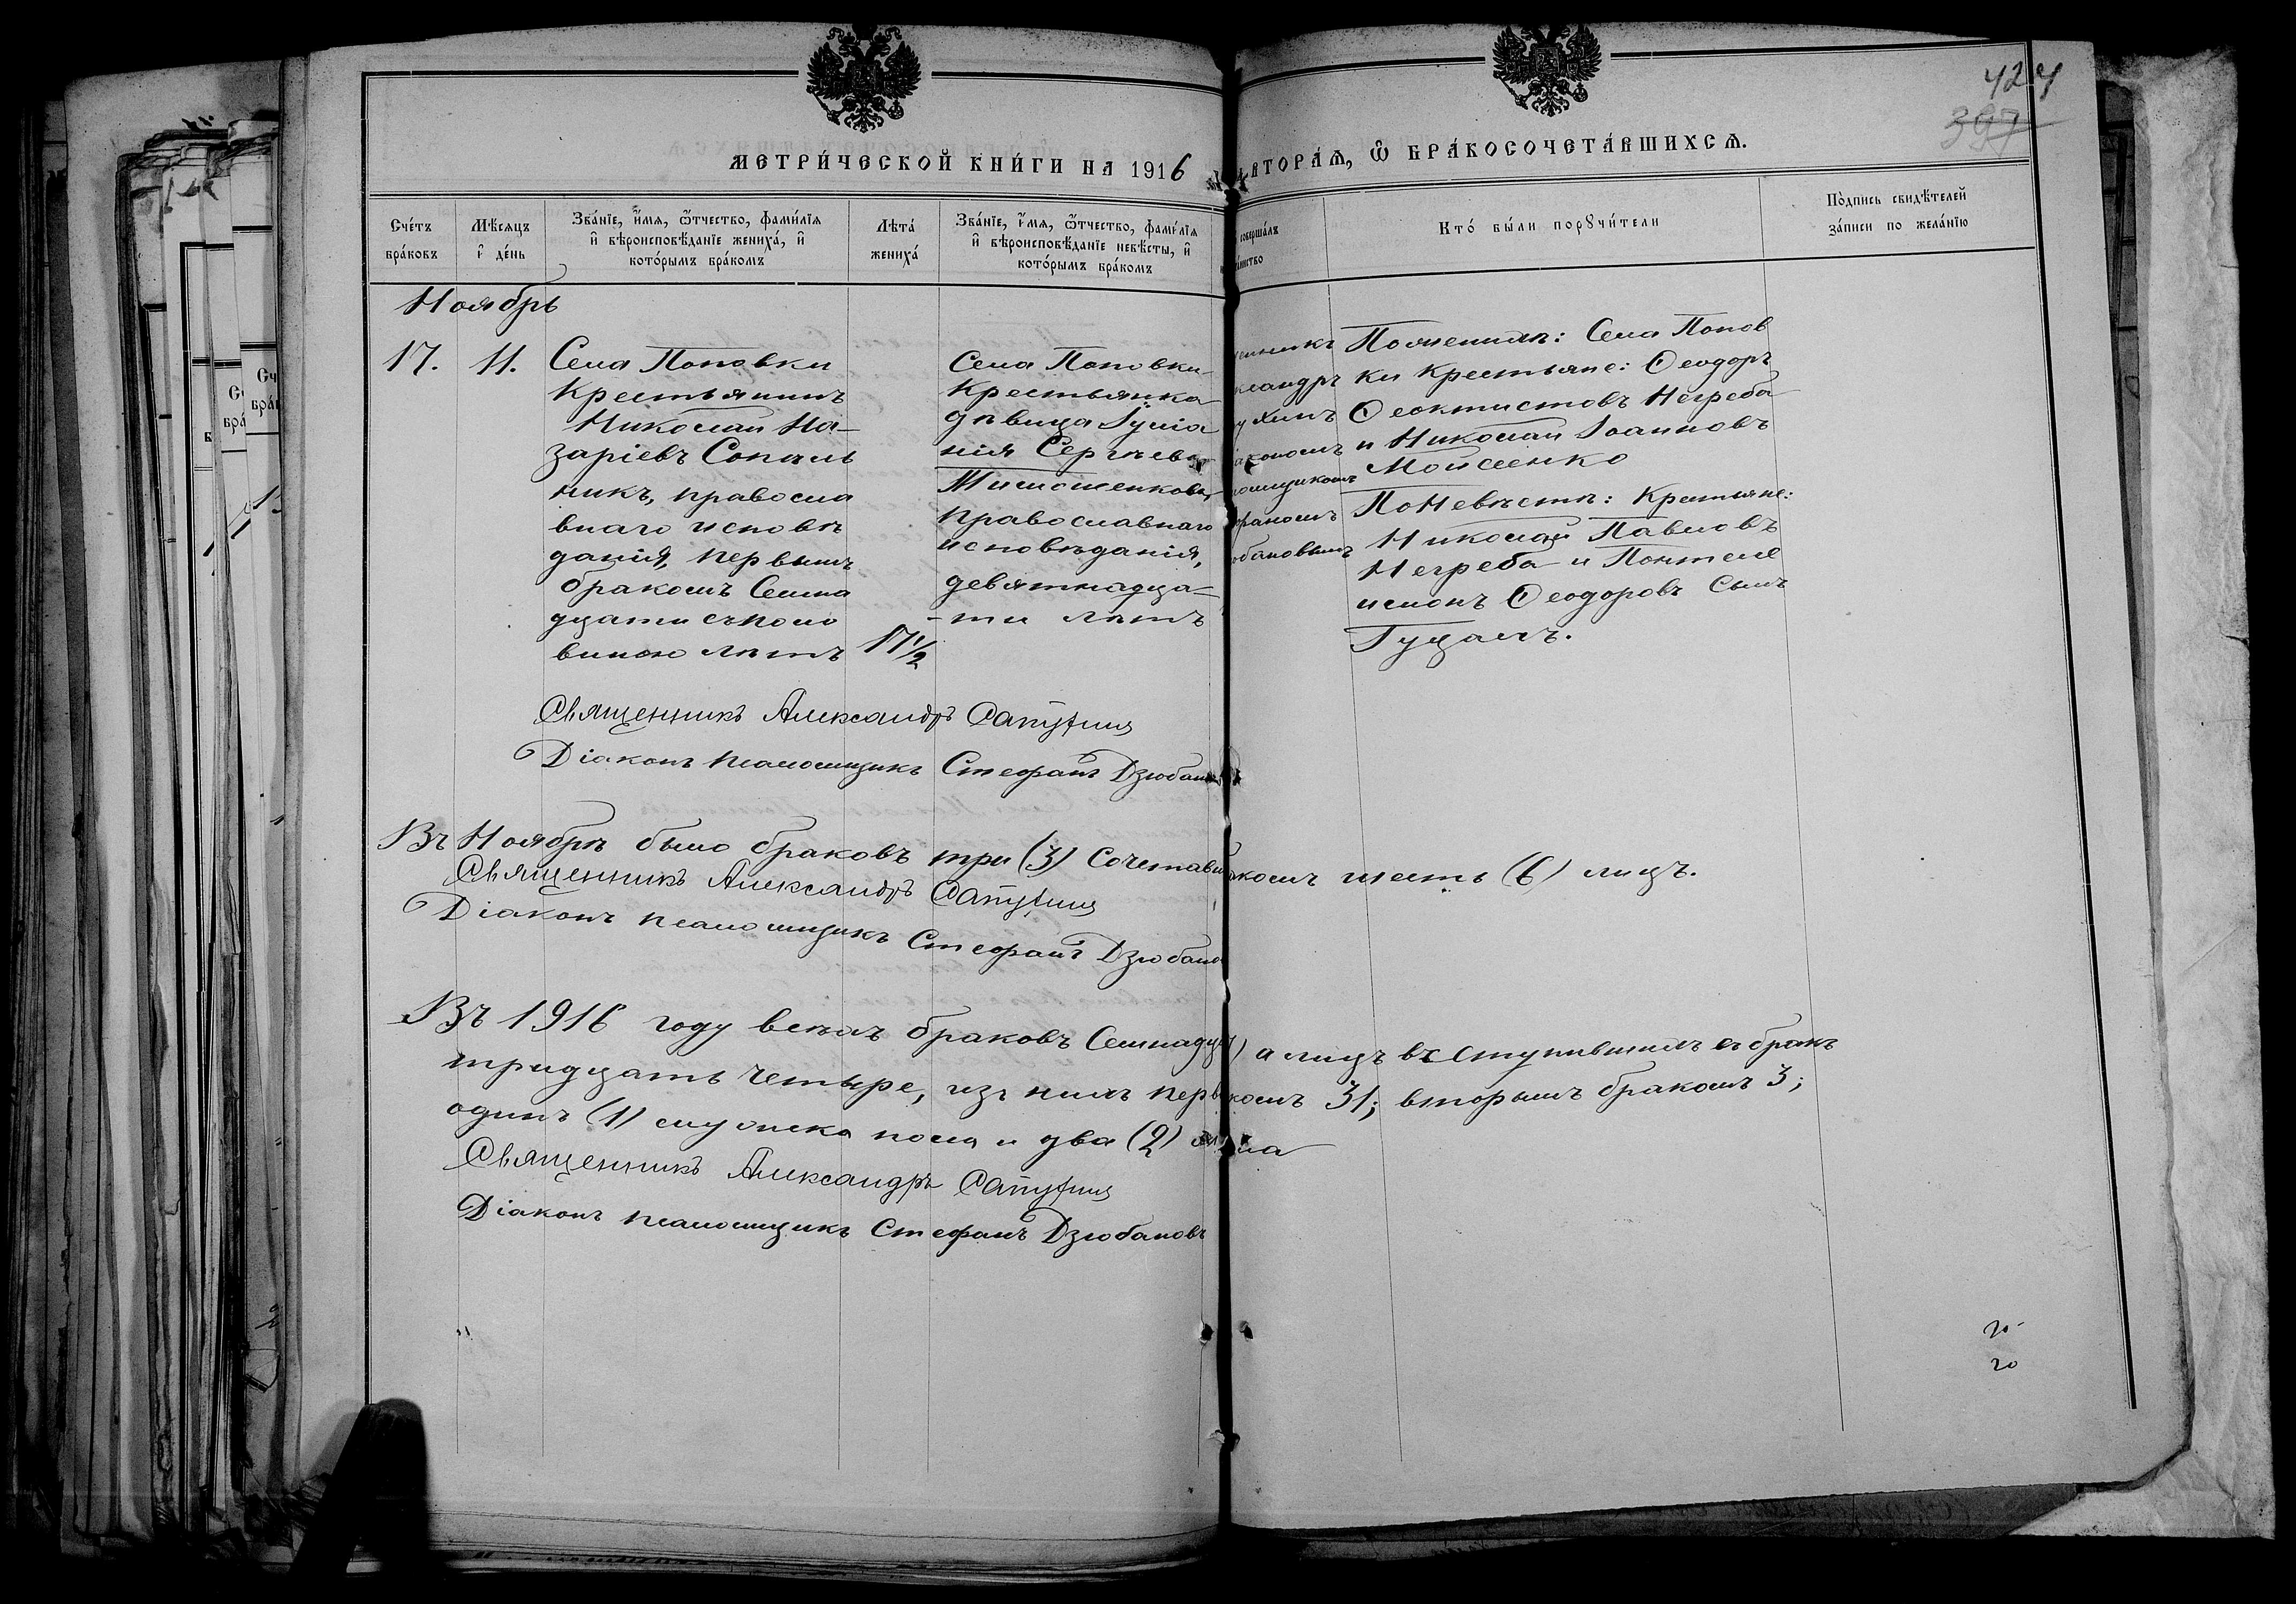 424
397
МЕТРИ́ЧЕСКОЙ КНИ́ГИ НА 1916
ВТОРА́Ѧ, Ѿ БРА́КОСОЧЕТА́ВШИХСѦ.
Сче́тъ бра́ковъ
Мѣ́сяцъ и҆ де́нь
Зва́нїе, и҆́мя, ѻ҆́тчество, фами́лїя и҆ вѣроисповѣ́данїе жениха́, и҆ кото́рымъ бра́комъ
Лѣта́ жениха́
Зва́нїе, и҆́мя, ѻ҆́тчество, фами́лїя и҆ вѣроисповѣ́данїе невѣ́сты, и҆ кото́рымъ бра́комъ
соверша́лъ
Кто́ бы́ли порꙋчи́тели
По́дпись свидѣ́телей за́писи по жела́нїю
Ноябрь
17.
11.
Села Поповки
Крестьянинъ
Николай На-
заріевъ Сопиль
никъ, правосла
внаго исповѣ
данія, первымъ
бракомъ Семна
дцати съ поло
виною лѣтъ
17½
Села Поповки
Крестьянка
дѣвица Іуліа
нія Сергѣева
Тимошенкова,
православнаго
исповѣданія,
девятнадца-
-ти лѣтъ
По женихѣ: Села Попов
ки Крестьяне: Ѳеодоръ
Ѳеоктистовъ Негреба
и Николай Іоанновъ
Мойсеенко
По Невѣстѣ: Крестьяне:
Николай Павловъ
Негреба и Понтеле
имонъ Ѳеодоровъ сынъ
Гуцалъ.
Священникъ Александръ
Діаконъ псаломщикъ Стефанъ Дзюбановъ
Въ Ноябрѣ было браковъ три (3) Сочетавш
комъ шесть (6) лицъ.
Священникъ Александръ
Діаконъ псаломщикъ Стефанъ Дзюбано
Въ 1916 году всѣхъ браковъ Семнадца
а лицъ вступившихъ въ бракъ
тридцать четыре, изъ нихъ перв
комъ 31; вторымъ бракомъ 3;
одинъ (1) мужска пола и два (2)
Священникъ Александръ
Діаконъ псаломщикъ Стефанъ Дзюбановъ
20